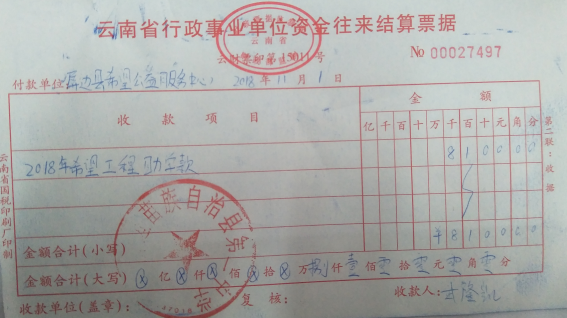 云南省行政事业单位资金往来结算票据
云南省
No 00027497
付款单位:屏边县希望公益服务中心 2018年11月1日
收款项目 金额
亿千百十万千百十元角分
2018年希望工程助学款 8 1 0 0 0 0
金额合计(小写) ¥ 8 1 0 0 0 0
金额合计(大写) ⊗亿⊗仟⊗佰⊗拾⊗万捌仟壹佰零拾零元零角零分
收款单位(盖章): 复核: 收款人:
第二联:收据
云南省国税印刷厂印制
苗族自治县第一中学